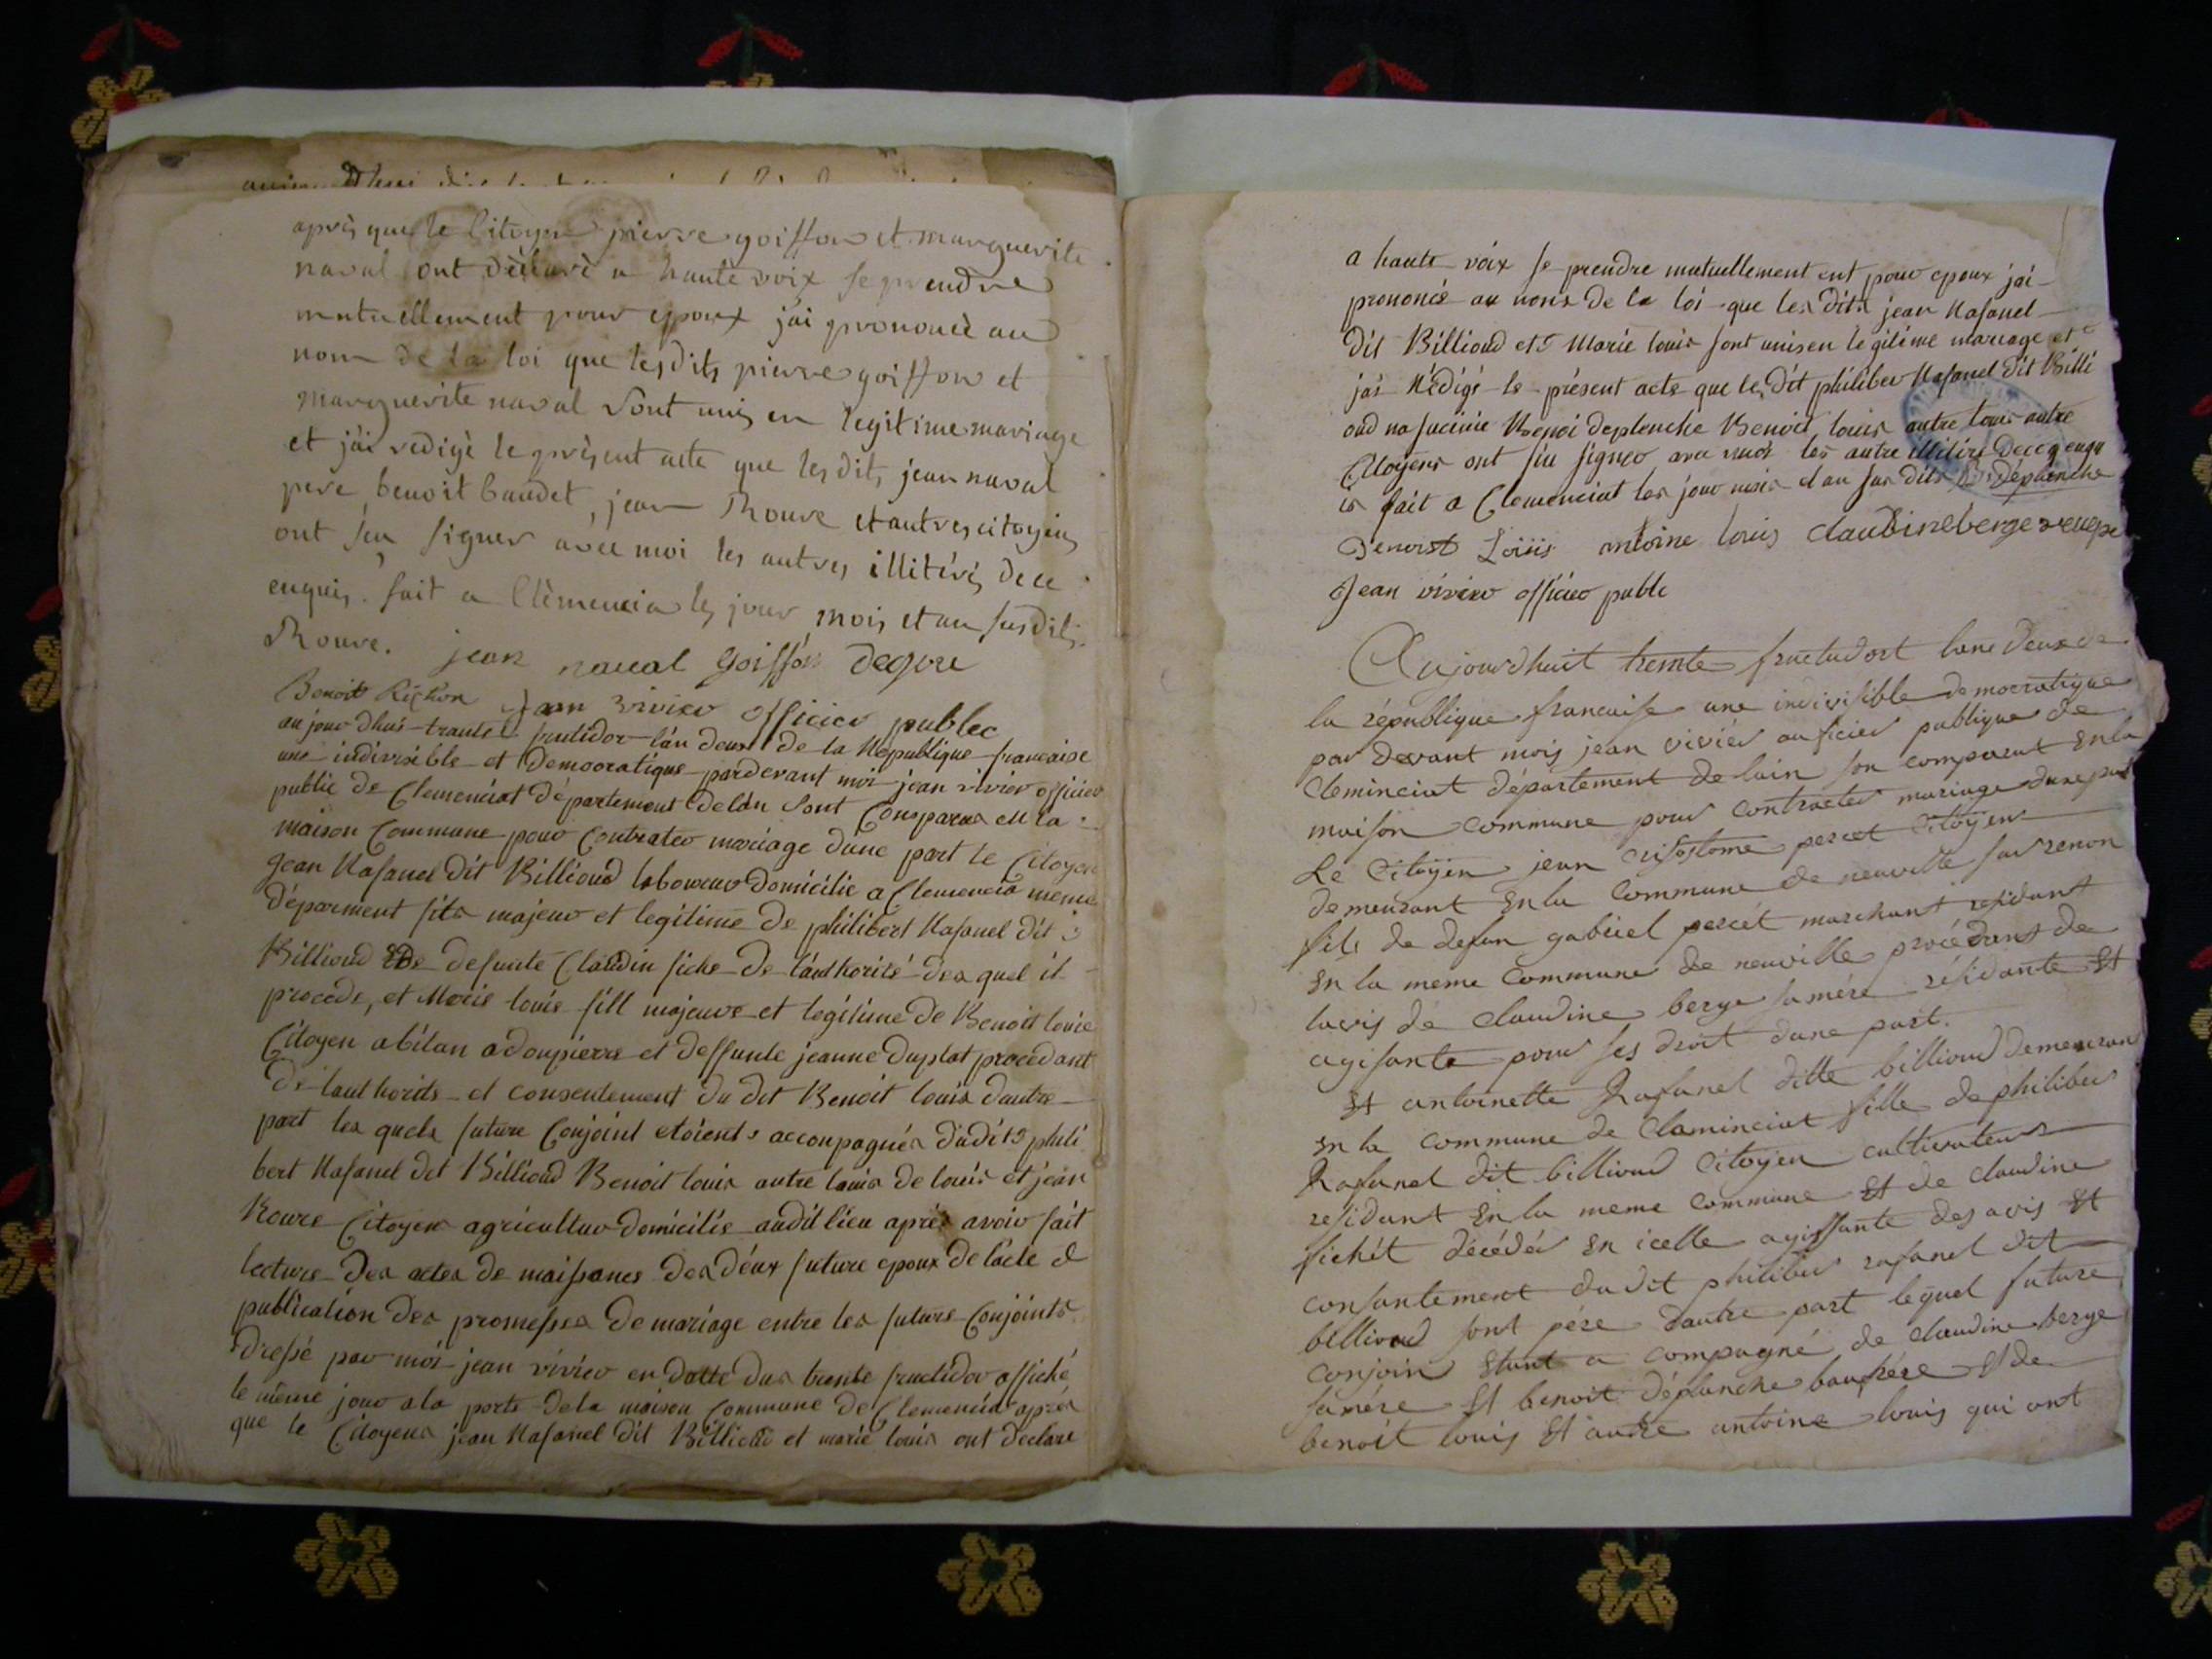 après que le Citoyen pierre goiffon et marguerite
naval ont dèclarè a haute voix se prendre
mutuellement pour epoux jái prononcè au
nom de la loi que lesdits pierre goiffon et
marguerite naval sont unis en legitime mariage
et jái redigè le prèsent acte que les dits jean naval
pere benoit baudet, jean Rouvre et autres citoyens
ont seu signer avec moi les autres illitérés de ce
enquis. fait a Clèmencia les jour mois et an susdits.
Rouvre. jean naval Goiffon
Benoit Jean vivier officier publec
au jour dhui trante frutidor lán deux de la Republique francaise
une indivisible et Democratique pardevant moi jean vivier officier
public de Clemenciat département de lán sont Comparus en la
maison Commune pour Contrater mariage dune part le Citoyen
jean Rafanel Dit Billioud laboureur domicilie a Clemencia meme
déparment fils majeur et legitime de philibert Rafanel dit
Billioud de defunte Claudin fiche de láuthorité des quel il
procede, et Marie louis fill majeure et legitime de Benoit louis
Citoyen abitan a donpierre et deffunte jeanne duplat procedant
de lauthorite et consentement du dit Benoit louis dautre
part les quels future Conjoint etoient accompagnés dudits phili
bert Rafanel dit Billioud Benoit louis autre louis de louis et jean
Rouvre Citoyen agricultur domicilie audit lieu après avoir fait
lecture des actes de naissances des déux future epoux de lácte d
publication des promesses de mariage entre les future Conjoints
dressé par moi jean vivier en datte dus trente fructidor affiché
le même jour a la porte dela maison Commune de Clemencia après
que le Citoyens jean Rafanel dit Billioud et marie louis ont declare
a haute voix se prendre mutuellement ent pour epoux jái
prononcé au noms de la loi que les dits jean Rafanel
dit Billioud et Marie louis sont unis en legitime mariage et
jái Rédigé le présent acte que le dit philiber Rafanel dit Billi
oud Benoi deplenche Benoit louis autre louis autre
Citoyens ont siu signer avec moi les autre illitire
is fait a Clemenciat les jour mois et an sus dits déplanche
Benoist Loüis antoine louis claudine berge
Jean vivier officier publc
Aujourdhuit trente fructudort lane deux de
la république francaise une indivisible democratique
par devant mois jean viviér auficier publique de
Cleminciat département de lain son comparut En la
maison commune pour contracter mariage dune part
Le Citoyen jean crisostome percet Citoyen
demeurant En la commune de neuville sur renon
fils de defun gabriel percét marchant residant
En la meme commune de neuville procèdant de
lavis de claudine berge samére résidante Et
agisante pour ses droit dune part.
Et antoinette Rafanel ditte billioud demeurant
En la commune de Claminciat fille de philiber
Rafanel dit billioud Citoyen cultivateur
residant En la meme commune Et de claudine
fichét décédéé En icelle agissante des avis Et
consantement dudit philiber rafanel dit
billioud sont pére dautre part lequel future
conjoin Etant a compagné de claudine berge
samére Et benoit déplanche baufrére Et de
benoit louis Et autre antoine louis qui ont